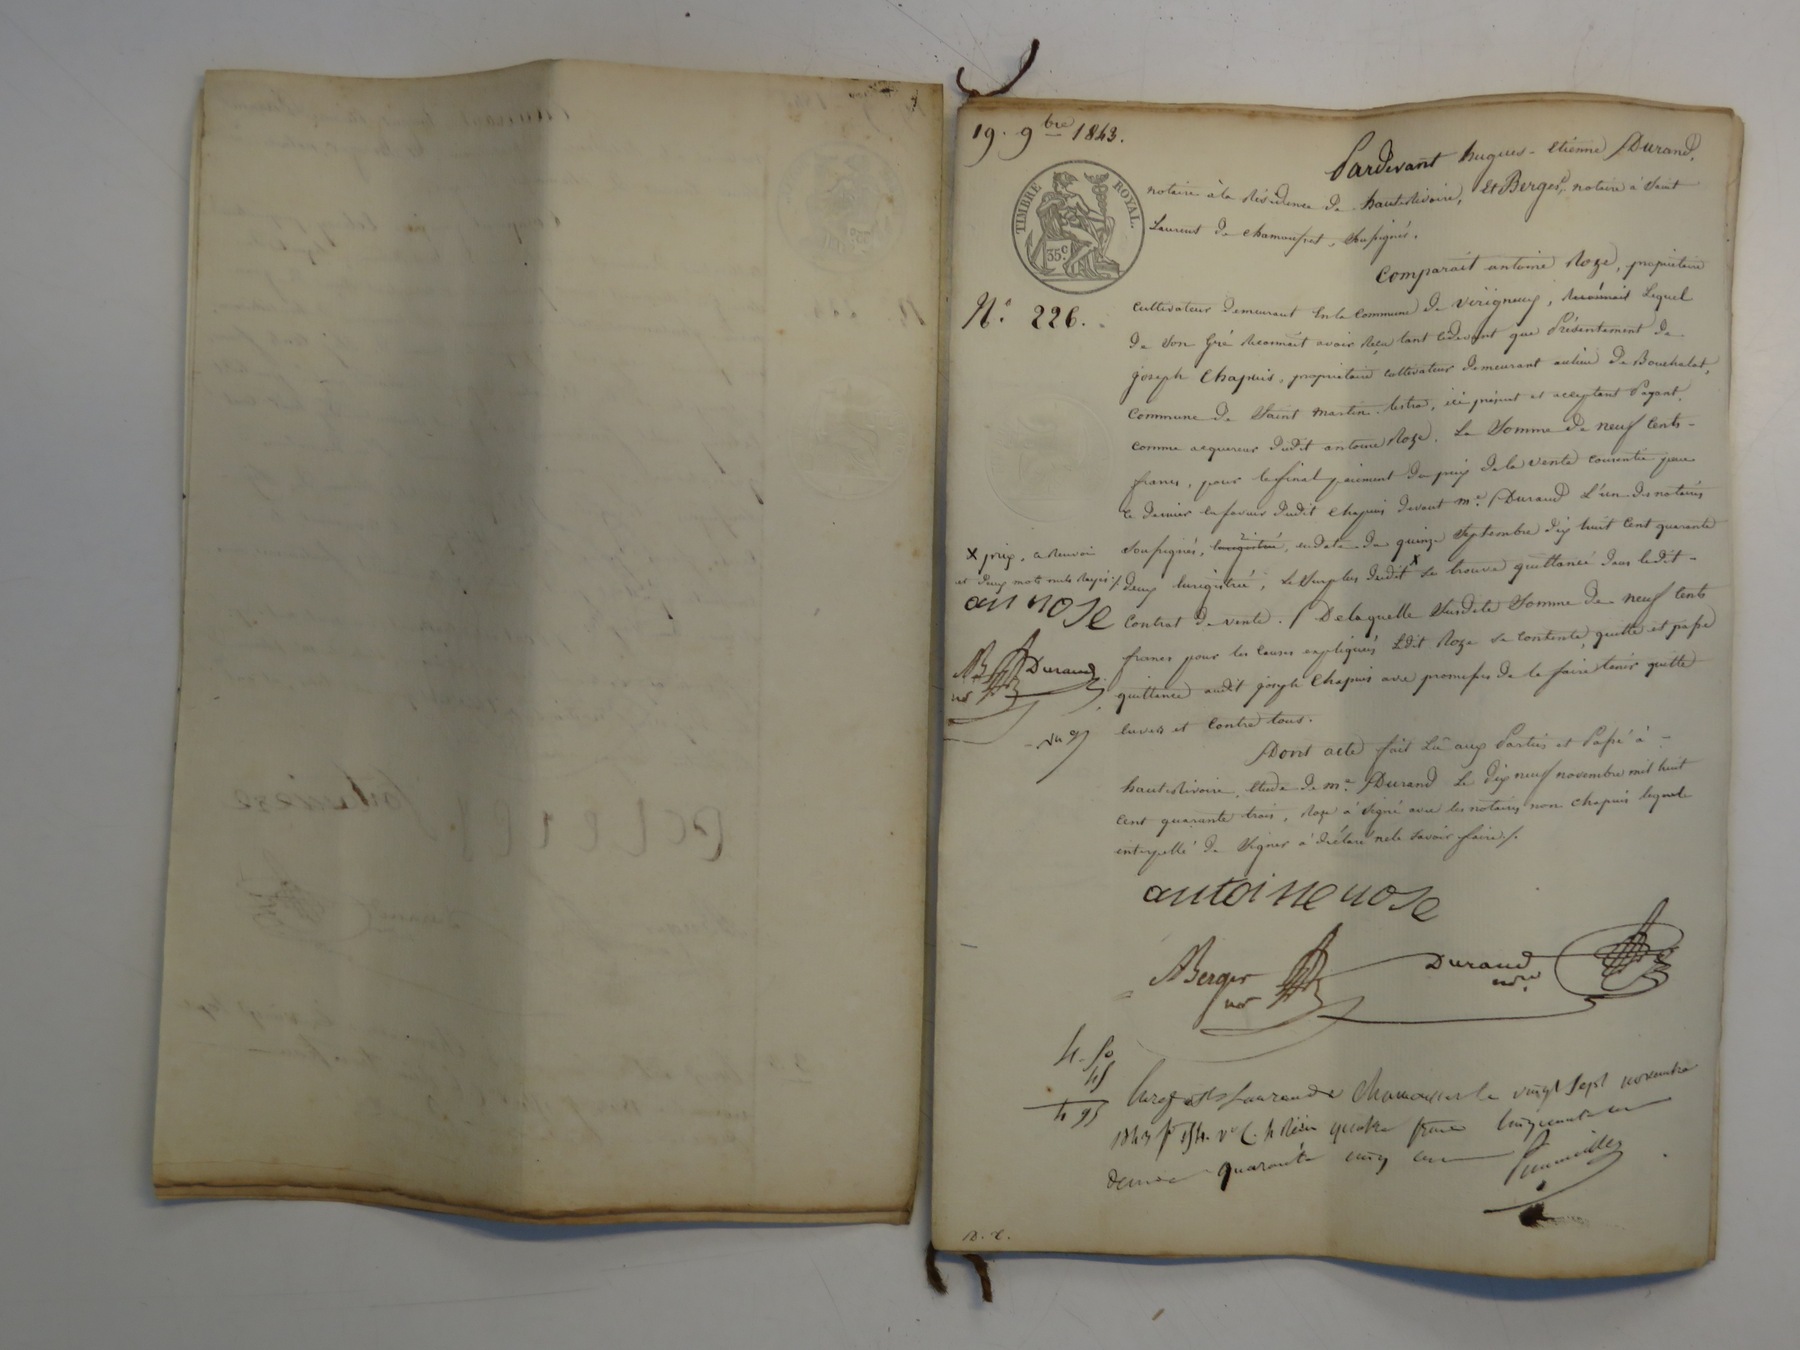 19. 9bre 1843.
Pardevant hugues-Etienne Durand,
notaire à la Résidence de hauterivoire, Et Berger, notaire à Saint
Laurent de chamousset, Soussignés.
TIMBRE ROYAL
35c
Comparait antoine Roze, propriétaire
N.o 226.
cultivateur demeurant En la Commune de virigneux, reconnait Lequel
de Son Gré Reconnait avoir Reçu tant cidevant que Présentement de
joseph Chapuis, propriétaire cultivateur demeurant aulieu de Bouchalat,
Commune de Saint Martin-lestra, ici présent et acceptant Payant,
Comme acquereur dudit antoine Roze. La Somme de neuf Cents-
francs, pour le final paiement du prix de la vente consentie par
ce dernier En faveur dudit Chapuis devant me. Durand L'un des notaires
Soussignés, Enregistrée, en date du quinze Septembre dix huit Cent quarante
deux Enregistrée, Le Surplus dudit x Se trouve quittancé dans ledit-
Contrat de vente. / De laquelle Susdite Somme de neuf Cents
francs pour les Causes expliquées Ledit Roze Se Contente, quitte et passe
quittance audit joseph Chapuis avec promesses de le faire tenir quitte
Envers et Contre tous.
x prix, a Renvoi
et deux mots nuls Rayés ./.
an rose
AB Durand
nre
Dont acte fait Lû aux Parties et Passé à -
hauterivoire, étude de me. Durand Le dix neuf novembre mil huit
Cent quarante trois, Roze à Signé avec les notaires non Chapuis lequel
interpellé de Signer à déclaré ne le Savoir faire ./.
antoine rose
ABerger
nre
Durand
nre.
4. 50
45
4 95
Enregé à St Laurent de Chamousset le vingt sept novembre
1843 fo 154. vo C. 4 Reçu quatre francs cinquante cent
decime quarante cinq cent
R. C.